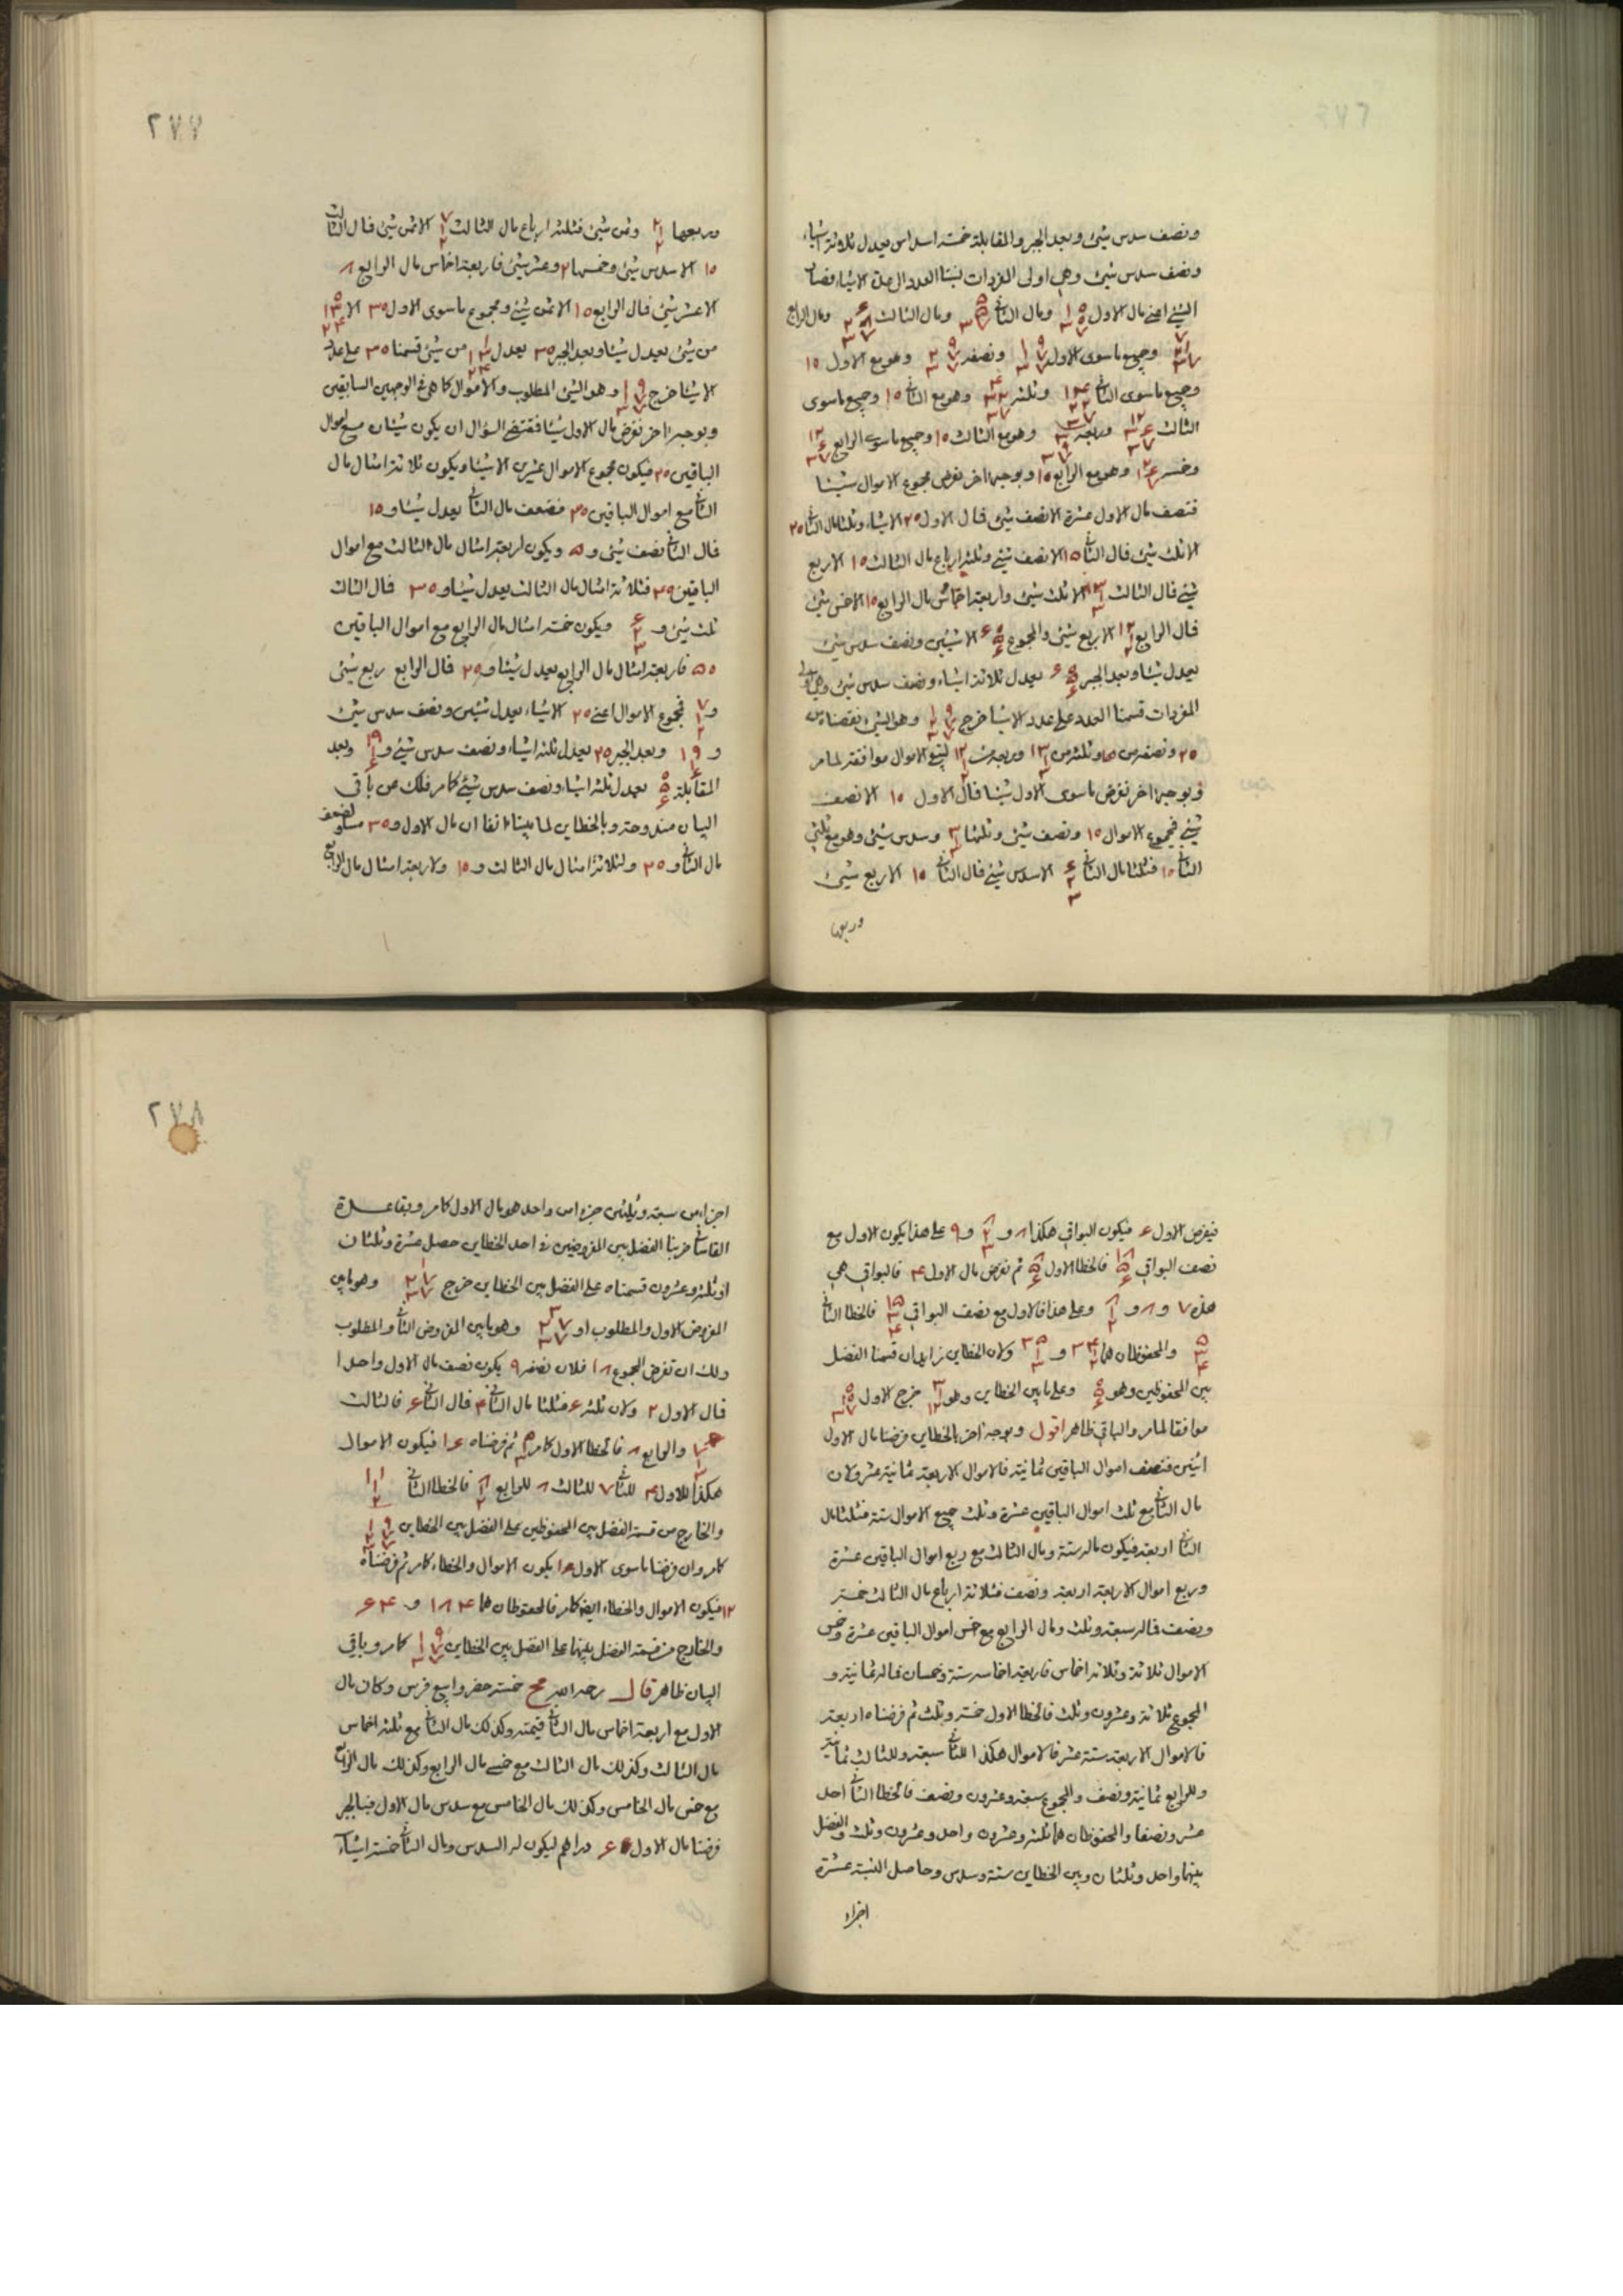 ونصف سدس شيئ وبعد الجبر والمقابلة خمسة اسداس يعدل ثلاثة اشياء
ونصف سدس شيئ وهي اولى المفردات نسبنا العدد الى عدة الاشياء فصار
الشيئ اعني مال الاول ومال الثاني ومال الثالث ومال الرابع
وجميع ماسوى الاول ونصفه وهو مع الاول ١٥
وجميع ماسوى الثاني وثلثه وهو مع الثاني ١٥ وجميع ماسوى
الثالث وربعه وهو مع الثالث ١٥ وجميع ماسوى الرابع
وخمسه وهو مع الرابع ١٥ وبوجه اخر نفرض مجموع الاموال شيئا
فنصف مال الاول عشرة الا نصف شيئ فمال الاول ٢٥ الا شياء وثلثا مال الثاني ٢٥
الا ثلث شيئ فمال الثاني ١٥ الا نصف شيئ وثلثة ارباع مال الثالث ١٥ الا ربع
شيئ فمال الثالث الا ثلث شيئ واربعة اخماس مال الرابع ١٥ الا خمس شيئ
فمال الرابع الا ربع شيئ والمجموع الا شيئين ونصف سدس شيئ
يعدل شيئا وبعد الجبر يعدل ثلاثة اشياء ونصف سدس شيئ وهي اولى
المفردات قسمنا العدد على عدد الاشيا خرج وهو الشيء نقصناه من
٢٥ ونصفه من ١٥ وثلثه من وربعه من لتبقي الاموال موافقة لما مر
وبوجه اخر نفرض ماسوى الاول شيئا فمال الاول ١٥ الا نصف
شيئ فمجموع الاموال ١٥ ونصف شيئ وثلثها وسدس شيئ وهو مع ثلثي
الثاني ١٥ فثلثا مال الثاني الا سدس شيئ فمال الثاني ١٥ الا ربع شيئ
وربعها
٢٧٧
وربعها وثمن شيئ فثلثة ارباع مال الثالث الا ثمن شيئ فمال الثالث
١٥ الا سدس شيئ وخمسها ٢ وعشر شيئ فاربعة اخماس مال الرابع ٨
الا عشر شيئ فمال الرابع ١٥ الا ثمن شيئ ومجموع ماسوى الاول ٣٥ الا
من شيئ يعدل شيئا وبعد الجبر ٣٥ يعدل من شيئ قسمنا ٣٥ على عدد
الاشيا خرج وهو الشيئ المطلوب والاموال كما هي في الوجهين السابقين
وبوجه اخر نفرض مال الاول شيئا فمقتضى السؤال ان يكون شيئان مع اموال
الباقين ٢٥ فيكون مجموع الاموال عشرين الا شيئا ويكون ثلاثة امثال مال
الثاني مع اموال الباقين ٣٥ فضعف مال الثاني يعدل شيئا و ١٥
فمال الثاني نصف شيئ و ٥ ويكون اربعة امثال مال الثالث مع اموال
الباقين فثلاثة امثال مال الثالث يعدل شيئا و ٣٥ فمال الثالث
ثلث شيئ و ويكون خمسة امثال مال الرابع مع اموال الباقين
٥٥ فاربعة امثال مال الرابع يعدل شيئا و فمال الرابع ربع شيئ
و فمجموع الاموال اعني ٢٥ الا شياء يعدل شيئين ونصف سدس شيئ
و وبعد الجبر ٢٥ يعدل ثلثة اشياء ونصف سدس شيئ و وبعد
المقابلة يعدل ثلثة اشياء ونصف سدس شيئ كما مر فلك عن باقي
البيان مندوحة وبالخطاين لما بينا انفا ان مال الاول و ٣٥ مساو لضعف
مال الثاني و ٢٥ ولثلاثة امثال مال الثالث و ١٥ ولاربعة امثال مال الرابع
فيفرض الاول ٤ فيكون البواقي هكذا ٨ و و ٩ على هذا يكون الاول مع
نصف البواقي فالخطا الاول ثم نفرض مال الاول ٣ فالبواقي هي
هذه ٧ و ٨ و وعلى هذا فالاول مع نصف البواقي فالخطا الثاني
والمحفوظان هما و ولان الخطاين زايدان قسمنا الفضل
بين المحفوظين وهو وعلى مابين الخطاين وهو خرج الاول
موافقا لما مر والباقي ظاهر اقول وبوجه اخر بالخطاين فرضنا مال الاول
اثنين فنصف اموال الباقين ثمانية فالاموال الاربعة ثمانية عشر ولان
مال الثاني مع ثلث اموال الباقين عشرة وثلث جميع الاموال ستة فثلثا مال
الثاني اربعة فيكون ماله ستة ومال الثالث مع ربع اموال الباقين عشرة
وربع اموال الاربعة اربعة ونصف فثلاثة ارباع مال الثالث خمسة
ونصف فماله سبعة وثلث ومال الرابع مع خمس اموال الباقين عشرة وخمس
الاموال ثلاثة وثلاثة اخماس فاربعة اخماسه ستة وخمسان فماله ثمانية و
المجموع ثلاثة وعشرون وثلث فالخطا الاول خمسة وثلث ثم فرضناه اربعة
فالاموال الاربعة ستة عشر فالاموال هكذا للثاني سبعة وللثالث ثمانية
وللرابع ثمانية ونصف والمجموع سبعة وعشرون ونصف فالخطا الثاني احد
عشر ونصفا والمحفوظان هما ثلثة وعشرون واحد وعشرون وثلث والفضل
بينهما واحد وثلثان وبين الخطاين ستة وسدس وحاصل النسبة عشرة
اجزاء
٢٧٨
اجزاء من سبعة وثلثين جزءا من واحد هو مال الاول كما مر وبقاعدة
القاساني ضربنا الفضل بين المفروضين في احد الخطاين حصل عشرة وثلثان
او ثلثة وعشرون قسمناه على الفضل بين الخطاين خرج وهو مابين
المفروض الاول والمطلوب او وهو مابين المفروض الثاني والمطلوب
ولك ان تفرض المجموع ١٨ فلان نصفه ٩ يكون نصف مال الاول واحدا
فمال الاول ٢ ولان ثلثه ٦ فثلثا مال الثاني ٤ فمال الثاني ٦ فالثالث
والرابع ٨ فالخطا الاول كما مر ثم فرضناه ١٦ فيكون الاموال
هكذا للاول ٤ للثاني ٧ للثالث ٨ للرابع فالخطا الثاني
والخارج من قسمة الفضل بين المحفوظين على الفضل بين الخطاين
كما مر وان فرضنا ماسوى الاول يكون الاموال والخطاء كما مر ثم فرضناه
١٢ فيكون الاموال والخطاء ايضا كما مر فالمحفوظان هما ١٨٤ و
والخارج من قسمة الفضل بينهما على الفضل بين الخطاين كما مر وباقي
البيان ظاهر قال رحمه الله خمسة حضروا بيع فرس وكان مال
الاول مع اربعة اخماس مال الثاني قيمته وكذلك مال الثاني مع ثلثة اخماس
مال الثالث وكذلك مال الثالث مع خمسي مال الرابع وكذلك مال الرابع
مع خمس مال الخامس وكذلك مال الخامس مع سدس مال الاول فبالجبر
فرضنا مال الاول ٦ دراهم ليكون له السدس ومال الثاني خمسة اشياء